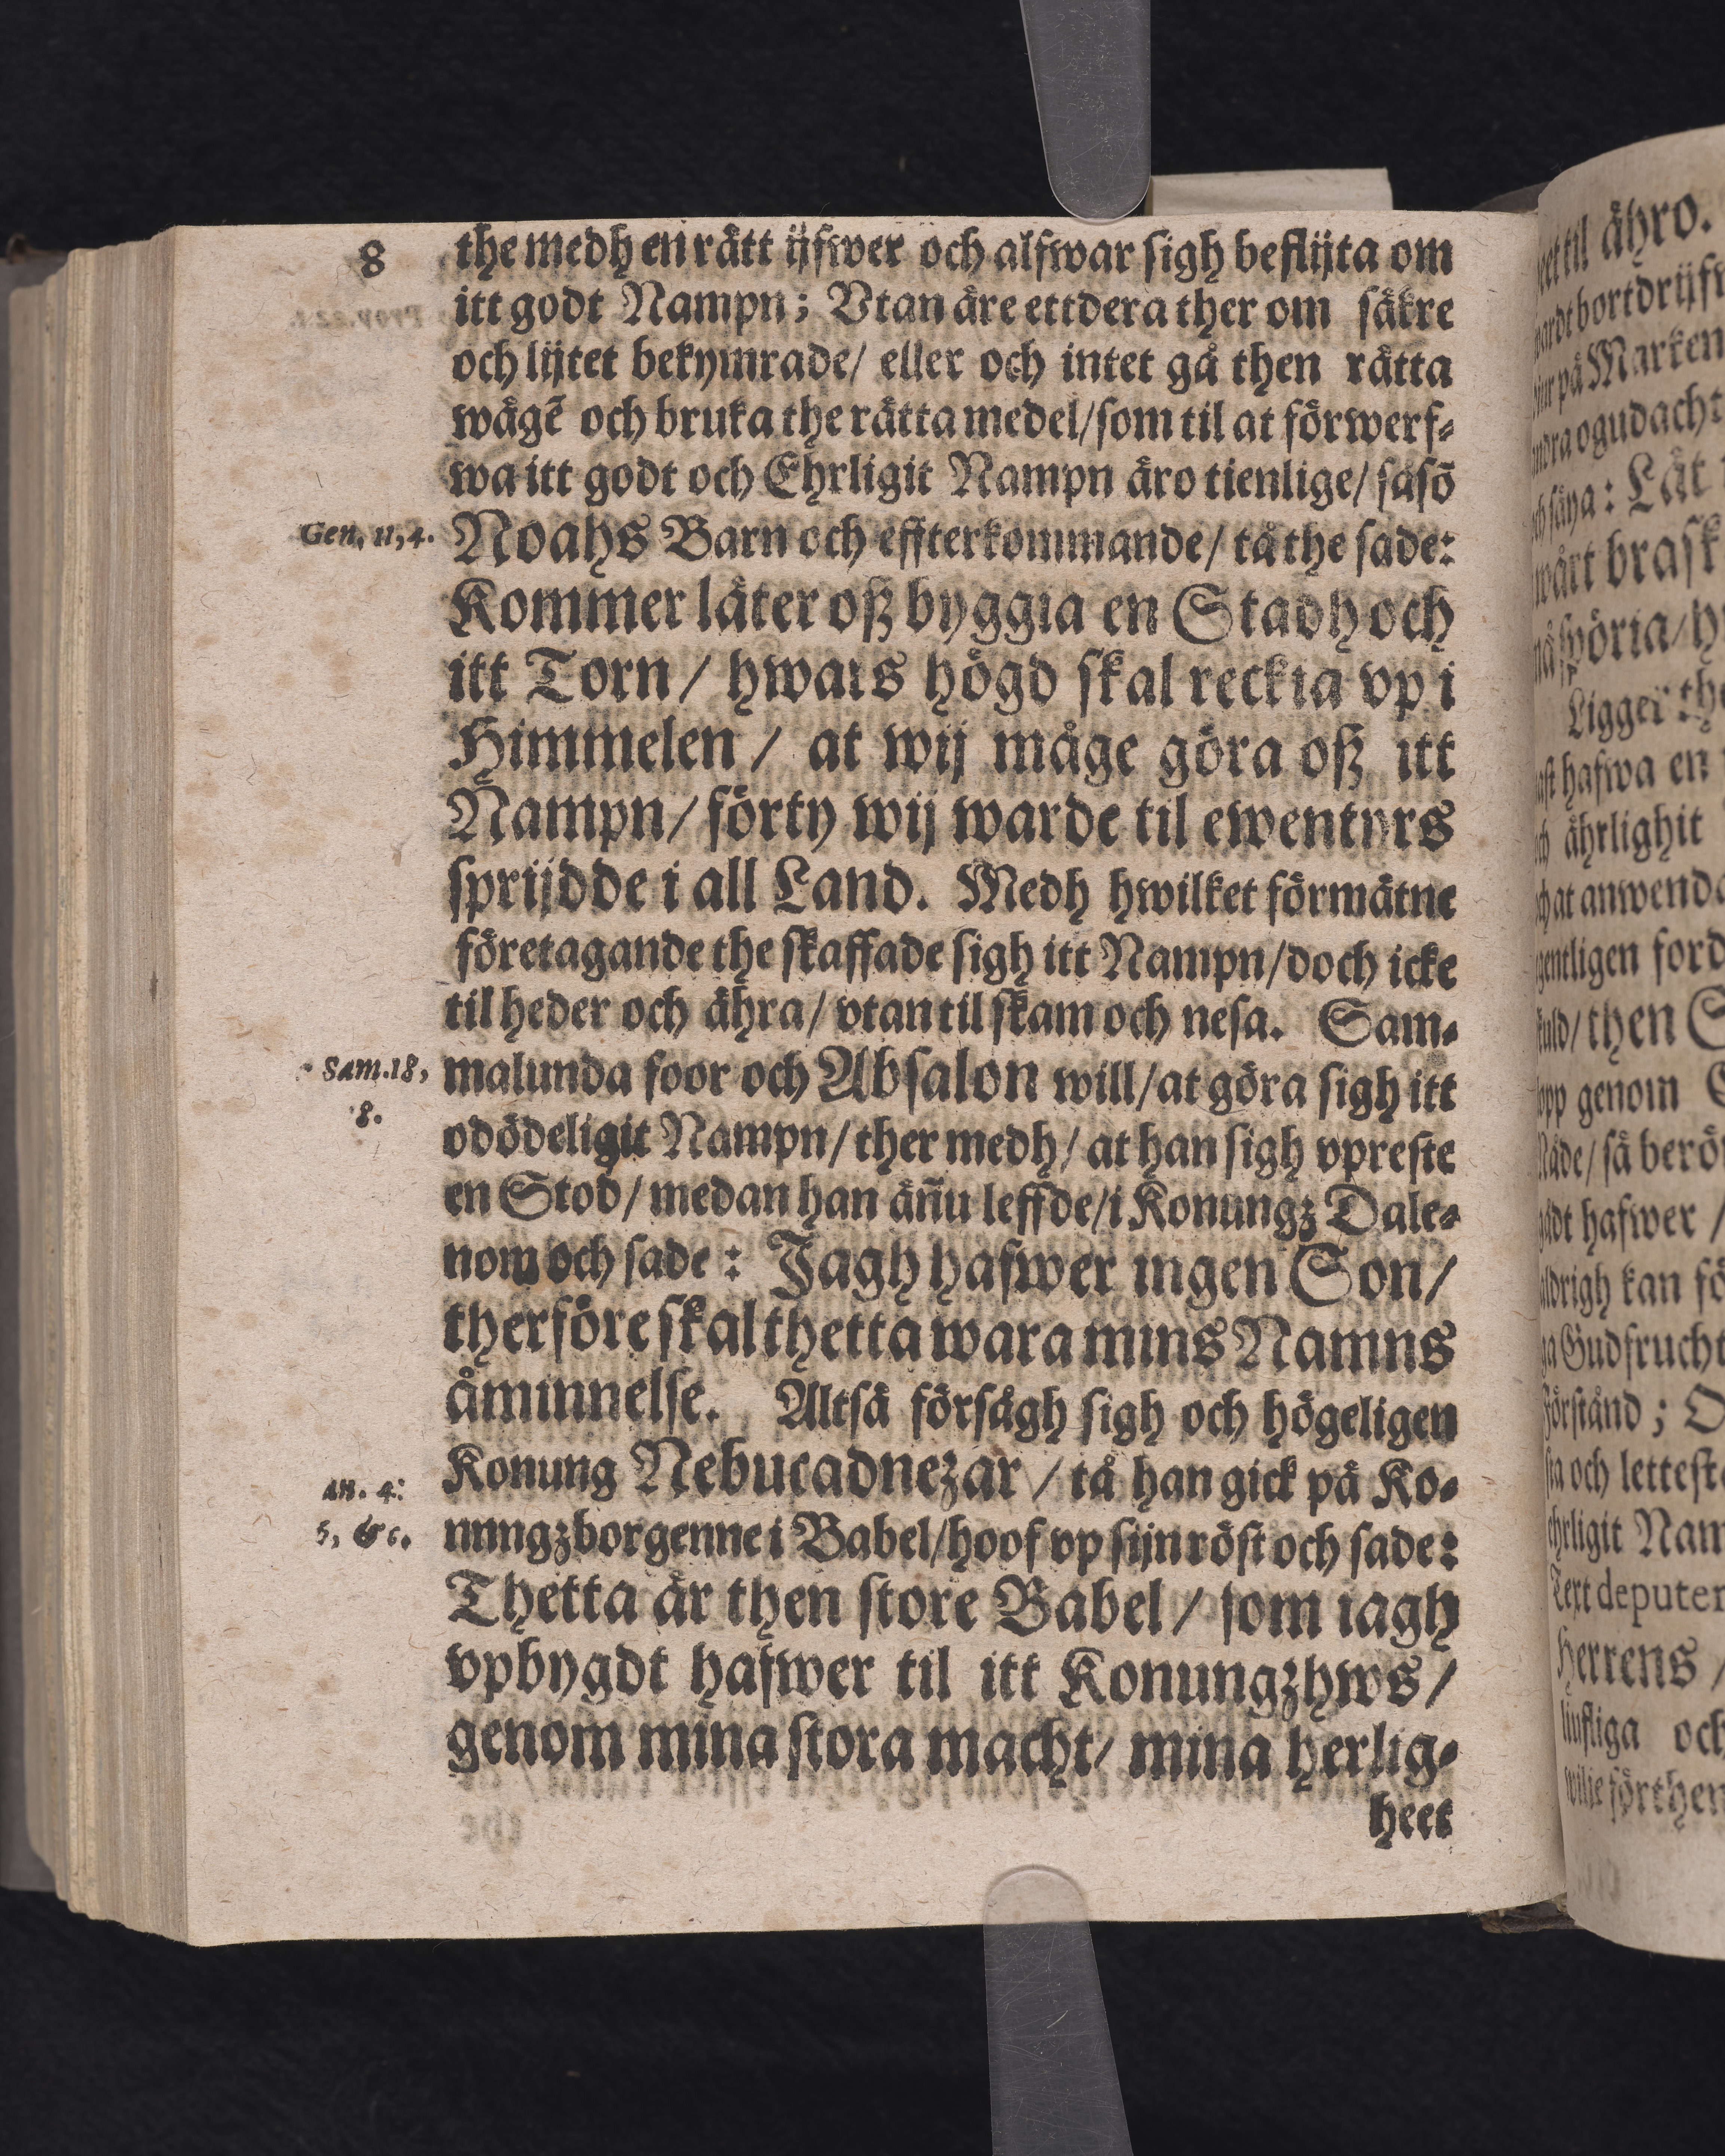 8
the medh en rätt ijfwer och alfwar sigh beflijta om
itt godt Nampn; Vtan äre ettdera ther om säkre
och lijtet bekymrade/ eller och intet gå then rätta
wägẽ och bruka the rätta medel/som til at förwerf⸗
wa itt godt och Ehrligit Nampn äro tienlige/ såsõ
Gen, 11, 4.
Noahs Barn och effterkommande/ tå the sade:
Kommer låter oß byggia en Stadh och
itt Torn/ hwars högd skal reckia vp i
Himmelen/ at wij måge göra oß itt
Nampn/ förty wij warde til ewentyrs
sprijdde i all Land. Medh hwilket förmätne
företagande the skaffade sigh itt Nampn/doch icke
til heder och ähra/ vtan til skam och nesa. Sam⸗
Sam. 18,
8.
malunda foor och Absalon will/at göra sigh itt
odödeligit Nampn/ ther medh/ at han sigh vpreste
en Stod/ medan han än̄u leffde/i Konungz Dale⸗
nom och sade: Jagh hafwer ingen Son/
therföre skal thetta wara mins Namns
åminnelse. Altså försågh sigh och högeligen
Konung Nebucadnezar/ tå han gick på Ko⸗
an. 4:
5, &c.
nungzborgenne i Babel/hoof vp sijn röst och sade:
Thetta är then store Babel/ som iagh
vpbygdt hafwer til itt Konungzhws/
genom mina stora macht/ mina herlig⸗
heet
til ähro.
bortdrijfw
på Marken
ogudacht
säya: Låt
wårt brask
spöria/ h
Ligger the
hafwa en
ährlighit
at anwenda
ford
then S
genom
så berö
hafwer/
kan fö
Gudfrucht
förstånd; O
och letteste
Nam
Text deputer
Herrens/
liufliga och
wilje förthen